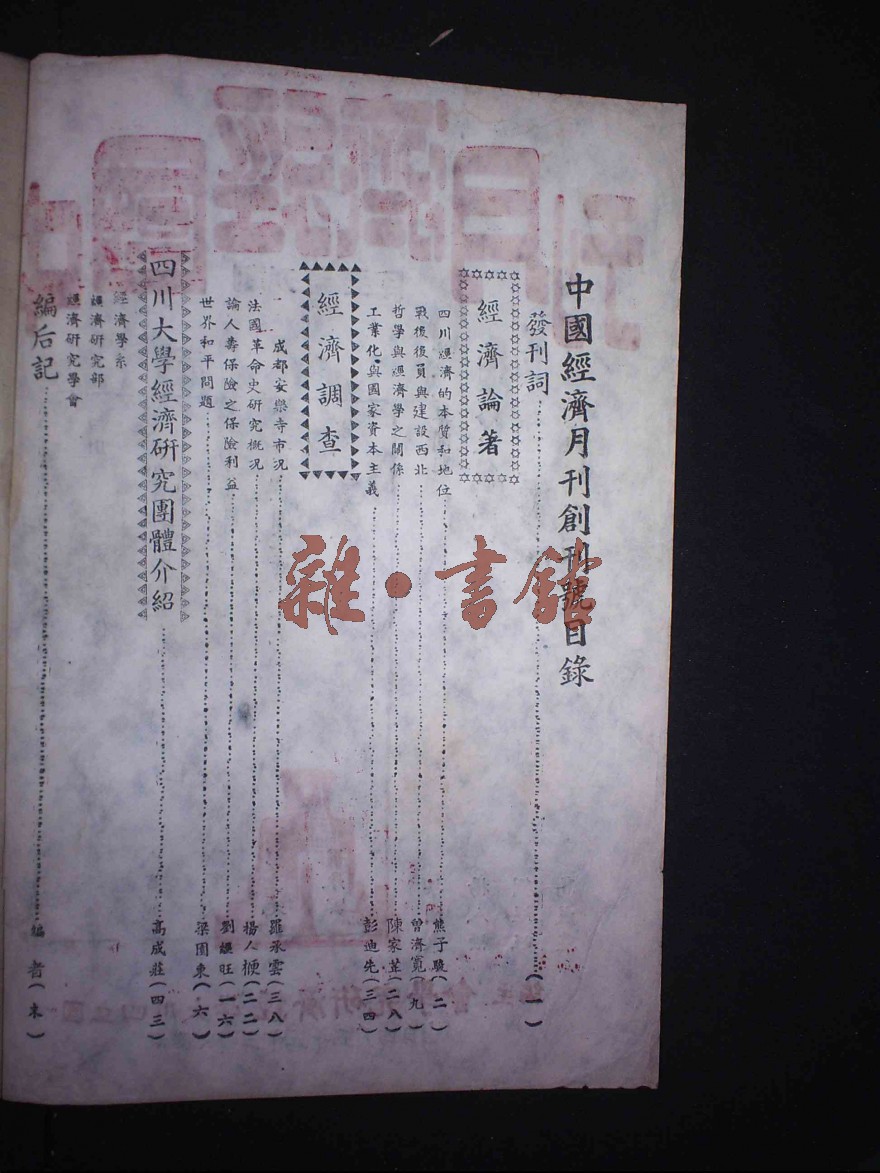 中國經濟月刊創刊號目錄
發刊詞(一)
經濟論著
四川經濟的本質和地位 熊子駿(二)
戰後復員與建設西北 曾濟寬(九)
哲學與經濟學之關係 陳家芷(二八)
工業化與國家資本主義 彭迪先(三四)
經濟調查
成都安樂寺市況 羅承雲(三八)
法國革命史研究概况 楊人楩(二二)
論人壽保險之保險利益 劉經旺(一六)
世界和平問題 梁園東(六)
四川大學經濟研究團體介紹 高成莊(四三)
經濟學系
經濟研究部
經濟研究學會
編后記 編者(末)
雜·書館